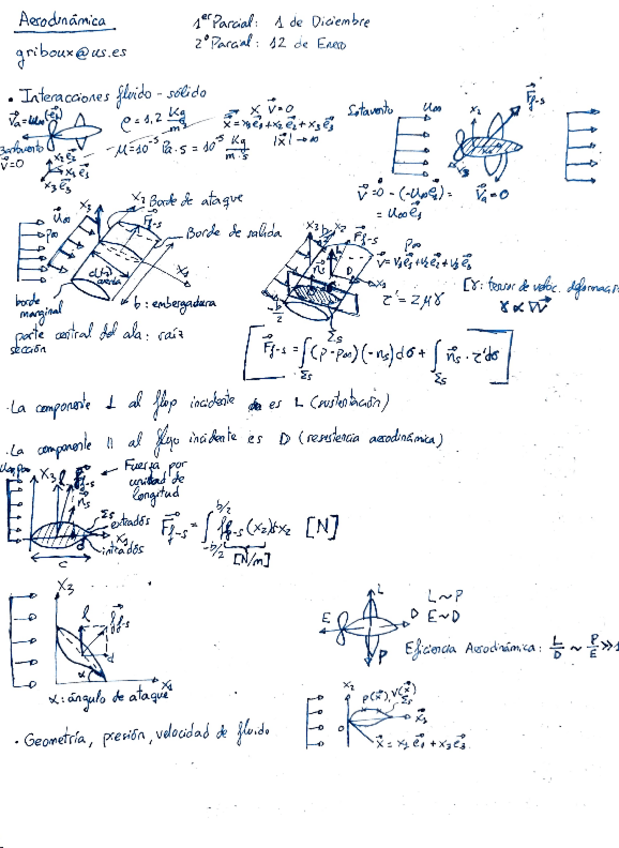 Aerodinámica
1er Parcial: 1 de Diciembre
griboux@us.es
2º Parcial: 12 de Enero
• Interacciones fluido - sólido
ρ = 1,2 Kg/m³
μ = 10⁻⁵ Pa·s = 10⁻⁵ Kg/m·s
x⃗ = x₁e⃗₁ + x₂e⃗₂ + x₃e⃗₃
|x⃗| → ∞
Sotavento
U∞
F⃗f-s
Barlovento
v⃗=0
x₁e⃗₁
x₃e⃗₃
v⃗ = 0 - (-U∞e⃗₁) =
= U∞e⃗₁
v⃗a = 0
Borde de ataque
Borde de salida
b: embergadura
borde
marginal
parte central del ala: raíz
sección
P∞
v⃗ = v₁e⃗₁ + v₂e⃗₂ + v₃e⃗₃
τ' = 2μγ
[γ: tensor de veloc. deformac
γ ∝ ∇v⃗
F⃗f-s = ∫Σs (p - p∞)(-n⃗s)dσ + ∫Σs n⃗s · τ'dσ
· La componente ⊥ al flujo incidente es L (sustentación)
· La componente || al flujo incidente es D (resistencia aerodinámica)
Fuerza por
unidad de
longitud
n⃗s
Σs
extradós
intradós
c
F⃗f-s = ∫-b/2^b/2 f⃗f-s (x₂)dx₂ [N]
[N/m]
X₃
l
f⃗f-s
d
α
x₁
α: ángulo de ataque
L
E
D
P
L ~ P
E ~ D
Eficiencia Aerodinámica: L/D ~ P/E >> 1
· Geometría, presión, velocidad de fluido
p(x⃗), v(x⃗)
Σs
x⃗ = x₁e⃗₁ + x₃e⃗₃